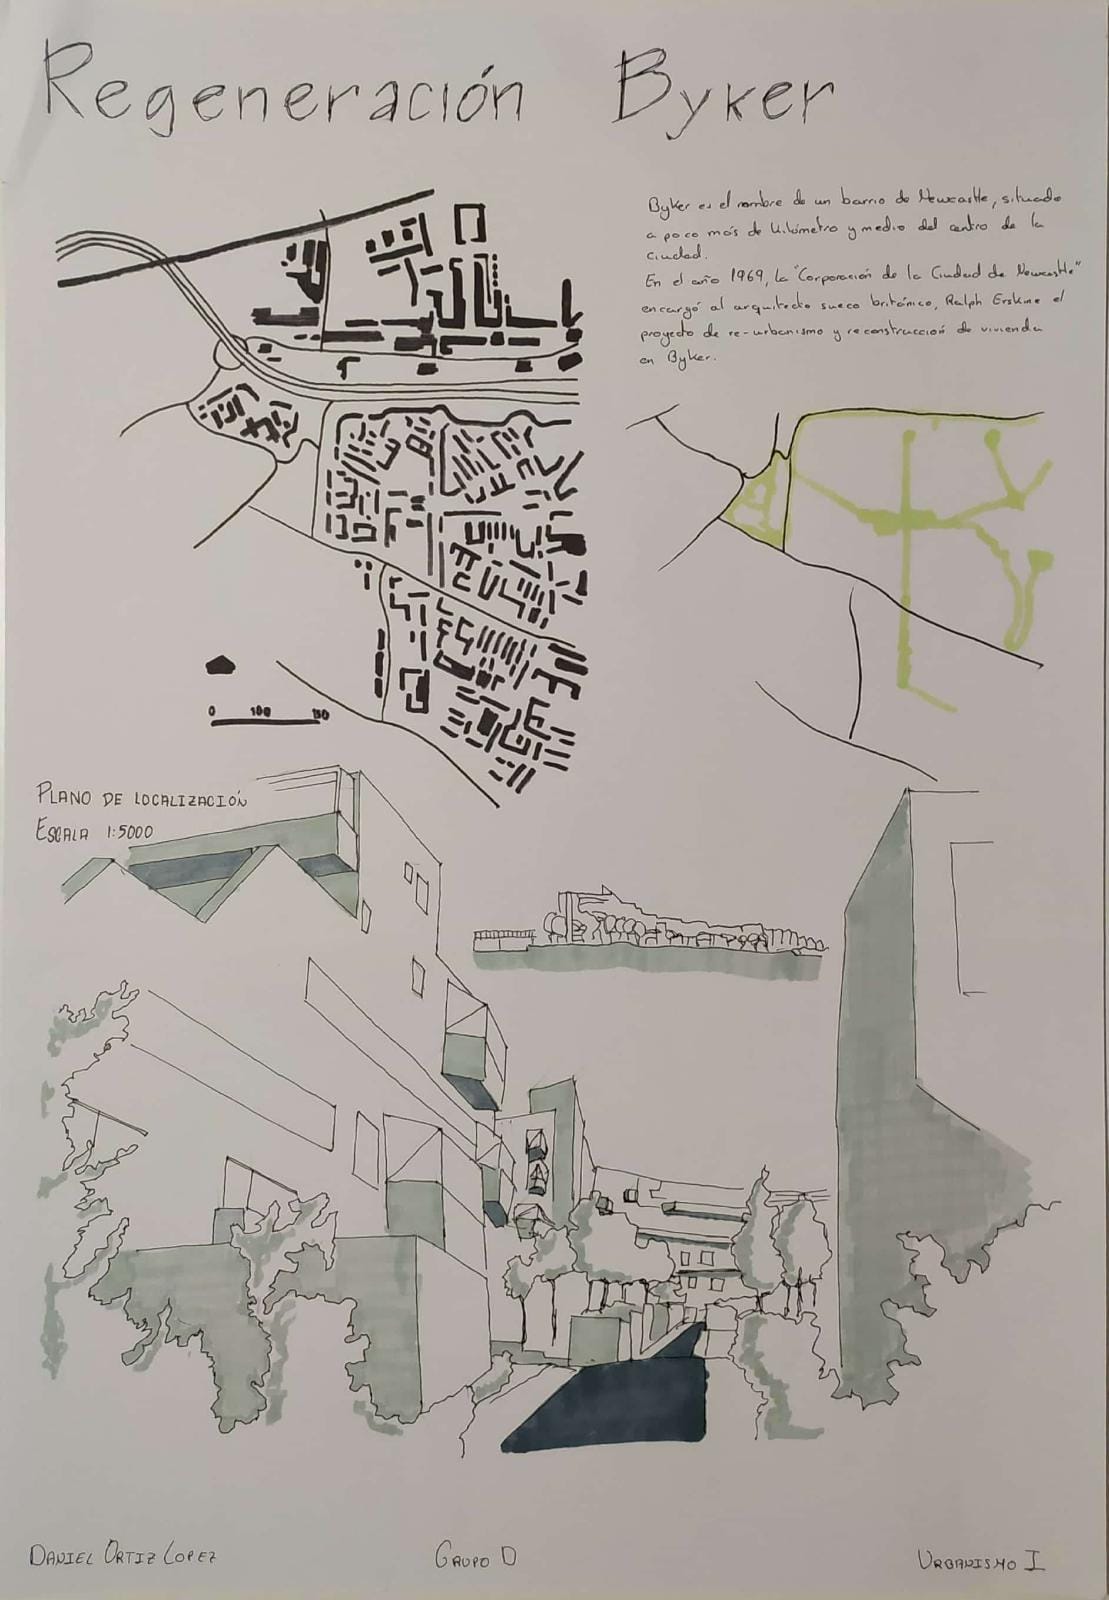 Regeneración Byker
Byker es el nombre de un barrio de Newcastle, situado
a poco más de kilómetro y medio del centro de la
ciudad.
En el año 1969, la "Corporación de la Ciudad de Newcastle"
encargó al arquitecto sueco británico, Ralph Erskine el
proyecto de re-urbanismo y reconstrucción de vivienda
en Byker.
0 100 150
PLANO DE LOCALIZACIÓN
ESCALA 1:5000
DANIEL ORTIZ LOPEZ GRUPO D URBANISMO I